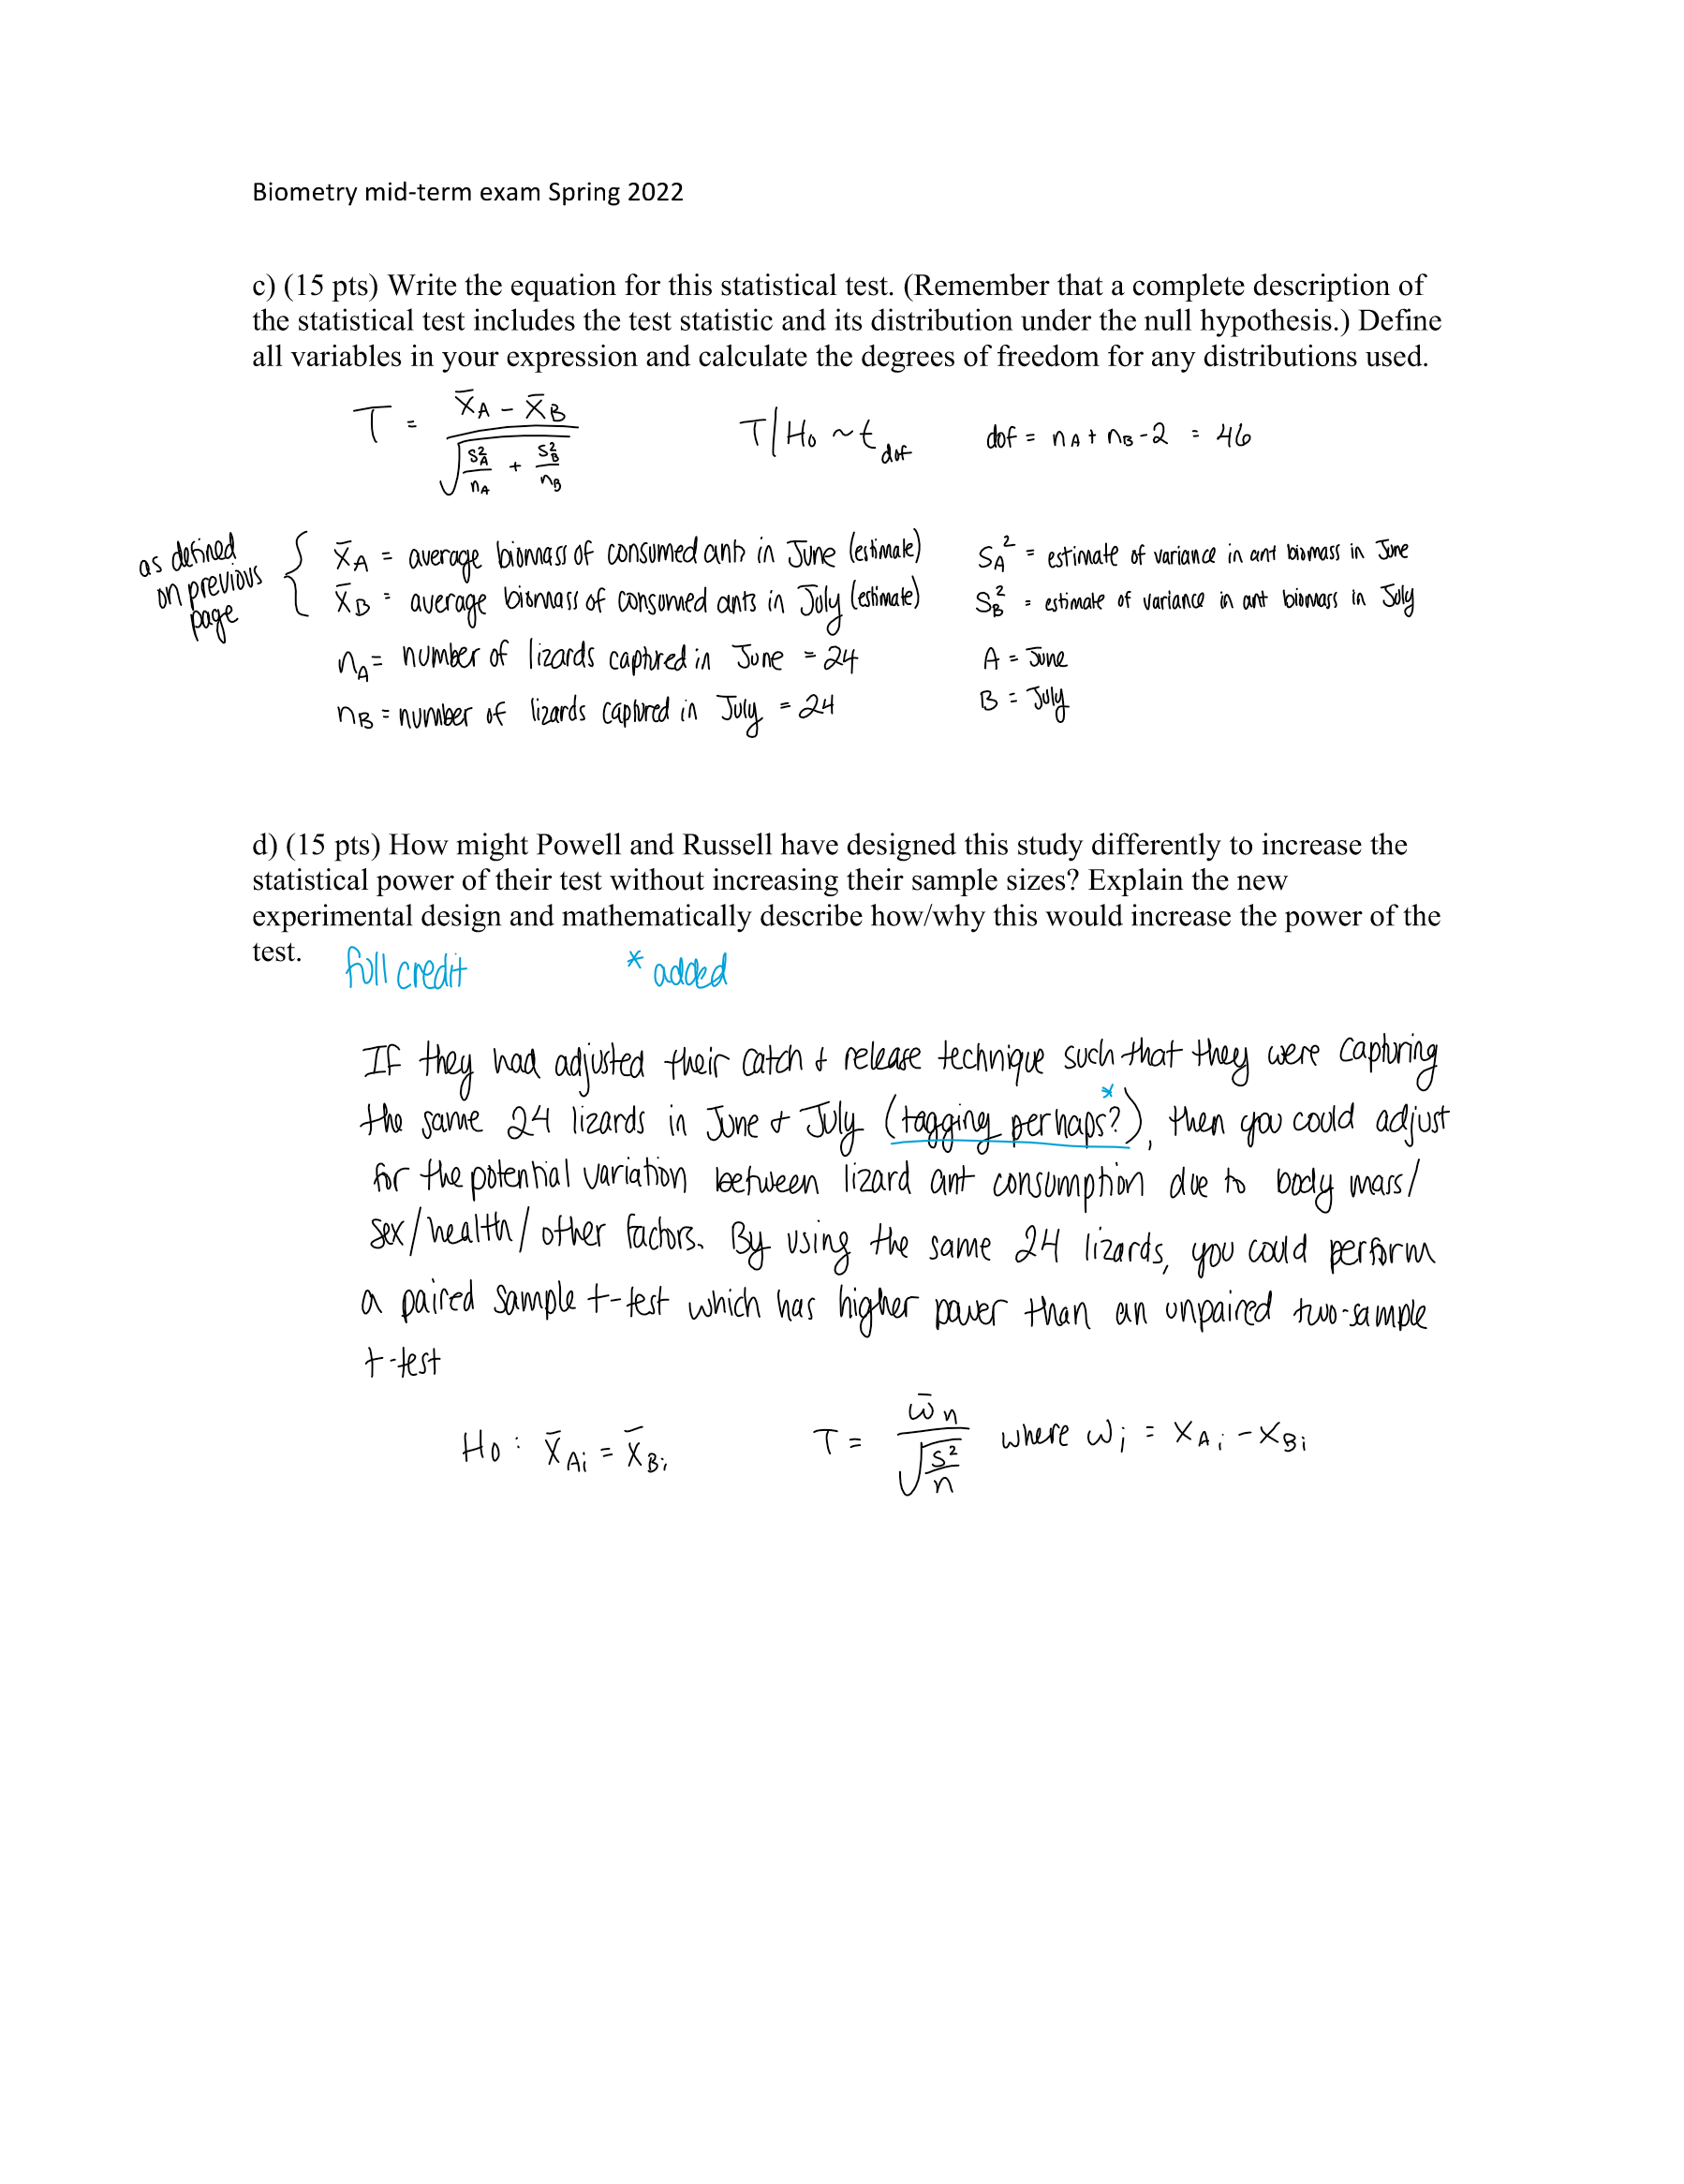 Biometry mid-term exam Spring 2022
c) (15 pts) Write the equation for this statistical test. (Remember that a complete description of
the statistical test includes the test statistic and its distribution under the null hypothesis.) Define
all variables in your expression and calculate the degrees of freedom for any distributions used.
T = (x̄_A - x̄_B) / √(s²_A/n_A + s²_B/n_B)    T|H₀ ~ t_dof    dof = n_A + n_B - 2 = 46
as defined
on previous
page
x̄_A = average biomass of consumed ants in June (estimate)
x̄_B = average biomass of consumed ants in July (estimate)
n_A = number of lizards captured in June = 24
n_B = number of lizards captured in July = 24
S_A² = estimate of variance in ant biomass in June
S_B² = estimate of variance in ant biomass in July
A = June
B = July
d) (15 pts) How might Powell and Russell have designed this study differently to increase the
statistical power of their test without increasing their sample sizes? Explain the new
experimental design and mathematically describe how/why this would increase the power of the
test.
full credit    * added
If they had adjusted their catch & release technique such that they were capturing
the same 24 lizards in June & July (tagging perhaps?*), then you could adjust
for the potential variation between lizard ant consumption due to body mass/
sex/health/other factors. By using the same 24 lizards, you could perform
a paired sample t-test which has higher power than an unpaired two-sample
t-test
H₀: x̄_Ai = x̄_Bi    T = w̄_n / √(s²/n) where w_i = x_Ai - x_Bi